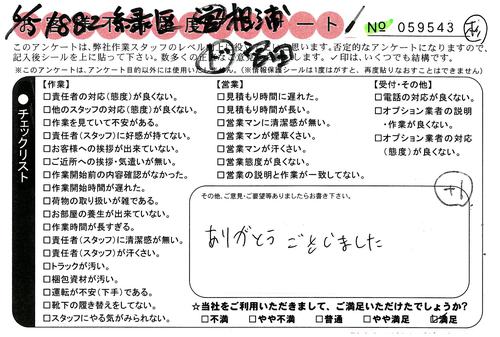 アンケート
№ 059543
このアンケートは、弊社作業スタッフのレベル
思います。否定的なアンケートになりますので、
記入後シールを上に貼って下さい。
します。✓印は、いくつでも結構です。
※このアンケートは、アンケート目的以外には使用いたしません。(※情報保護シールは1度はがすと、再度貼りなおすことはできません)
チェックリスト
【作業】
□責任者の対応(態度)が良くない。
□他のスタッフの対応(態度)が良くない。
□作業を見ていて不安がある。
□責任者(スタッフ)に好感が持てない。
□お客様への挨拶が出来ていない。
□ご近所への挨拶・気遣いが無い。
□作業開始前の内容確認がなかった。
□作業開始時間が遅れた。
□荷物の取り扱いが雑である。
□お部屋の養生が出来ていない。
□作業時間が長すぎる。
□責任者(スタッフ)に清潔感が無い。
□責任者(スタッフ)が汗くさい。
□トラックが汚い。
□梱包資材が汚い。
□運転が不安(下手)である。
□靴下の履き替えをしてない。
□スタッフにやる気がみられない。
【営業】
□見積もり時間に遅れた。
□見積もり時間が長い。
□営業マンに清潔感が無い。
□営業マンが煙草くさい。
□営業マンが汗くさい。
□営業態度が良くない。
□営業の説明と作業が一致してない。
【受付・その他】
□電話の対応が良くない。
□オプション業者の説明
・作業が良くない。
□オプション業者の対応
(態度)が良くない。
その他、ご意見・ご要望等ありましたらお書き下さい。
ありがとうございました
☆当社をご利用いただきまして、ご満足いただけたでしょうか?
□不満 □やや不満 □普通 □やや満足 ☑満足